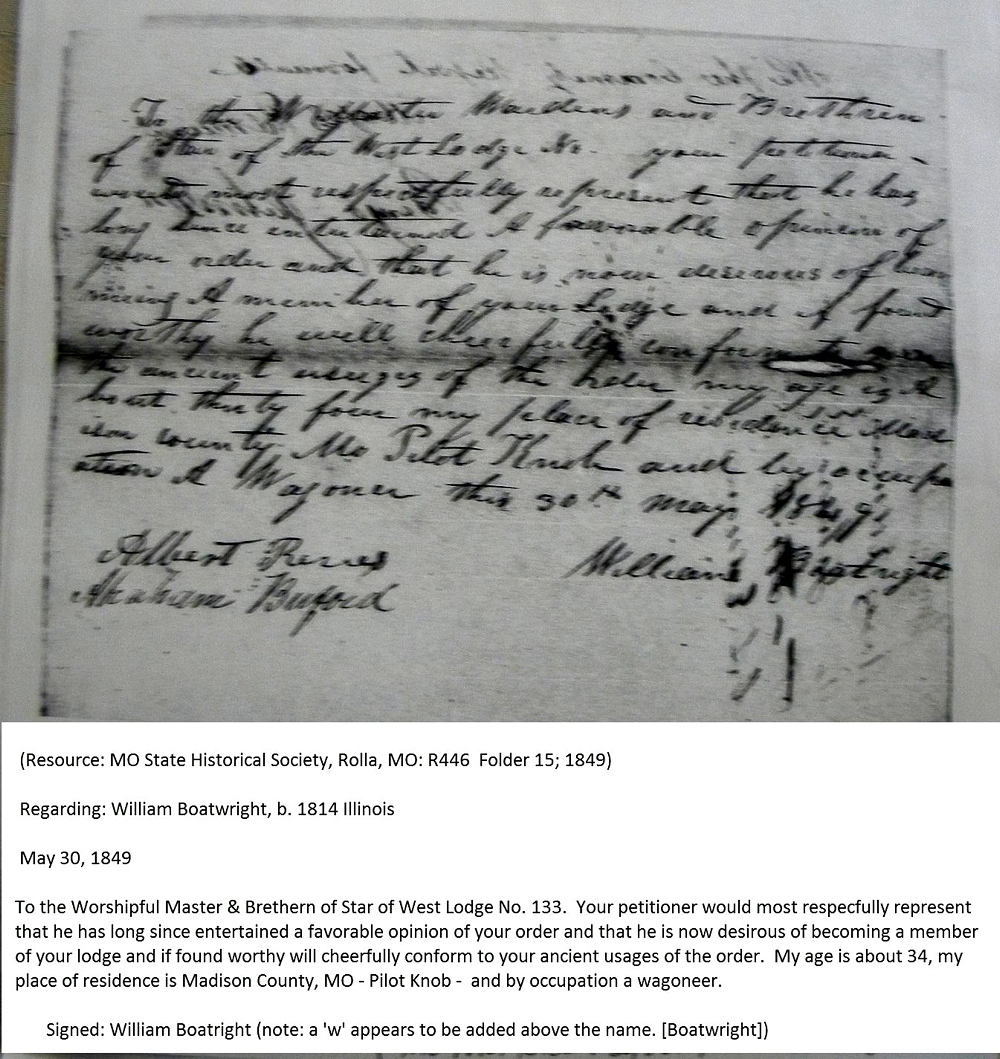 To the W Master Wardens and Brethren
of Star of the West Lodge No. your petitioner
would most respectfully represent that he has
long since entertained A favorable opinion of
your order and that he is now desirous of
A member of your Lodge and if found
worthy he will cheerfully conform to
the ancient of the my age is A
bout thirty four my place of residence is Mad
ison county Mo Pilot Knob and by occupa
ation A Wagoner this 30th may 1849
Albert
William Boatright
Abraham Buford
(Resource: MO State Historical Society, Rolla, MO: R446 Folder 15; 1849)
Regarding: William Boatwright, b. 1814 Illinois
May 30, 1849
To the Worshipful Master & Brethern of Star of West Lodge No. 133. Your petitioner would most respecfully represent
that he has long since entertained a favorable opinion of your order and that he is now desirous of becoming a member
of your lodge and if found worthy will cheerfully conform to your ancient usages of the order. My age is about 34, my
place of residence is Madison County, MO - Pilot Knob - and by occupation a wagoneer.
Signed: William Boatright (note: a 'w' appears to be added above the name. [Boatwright])